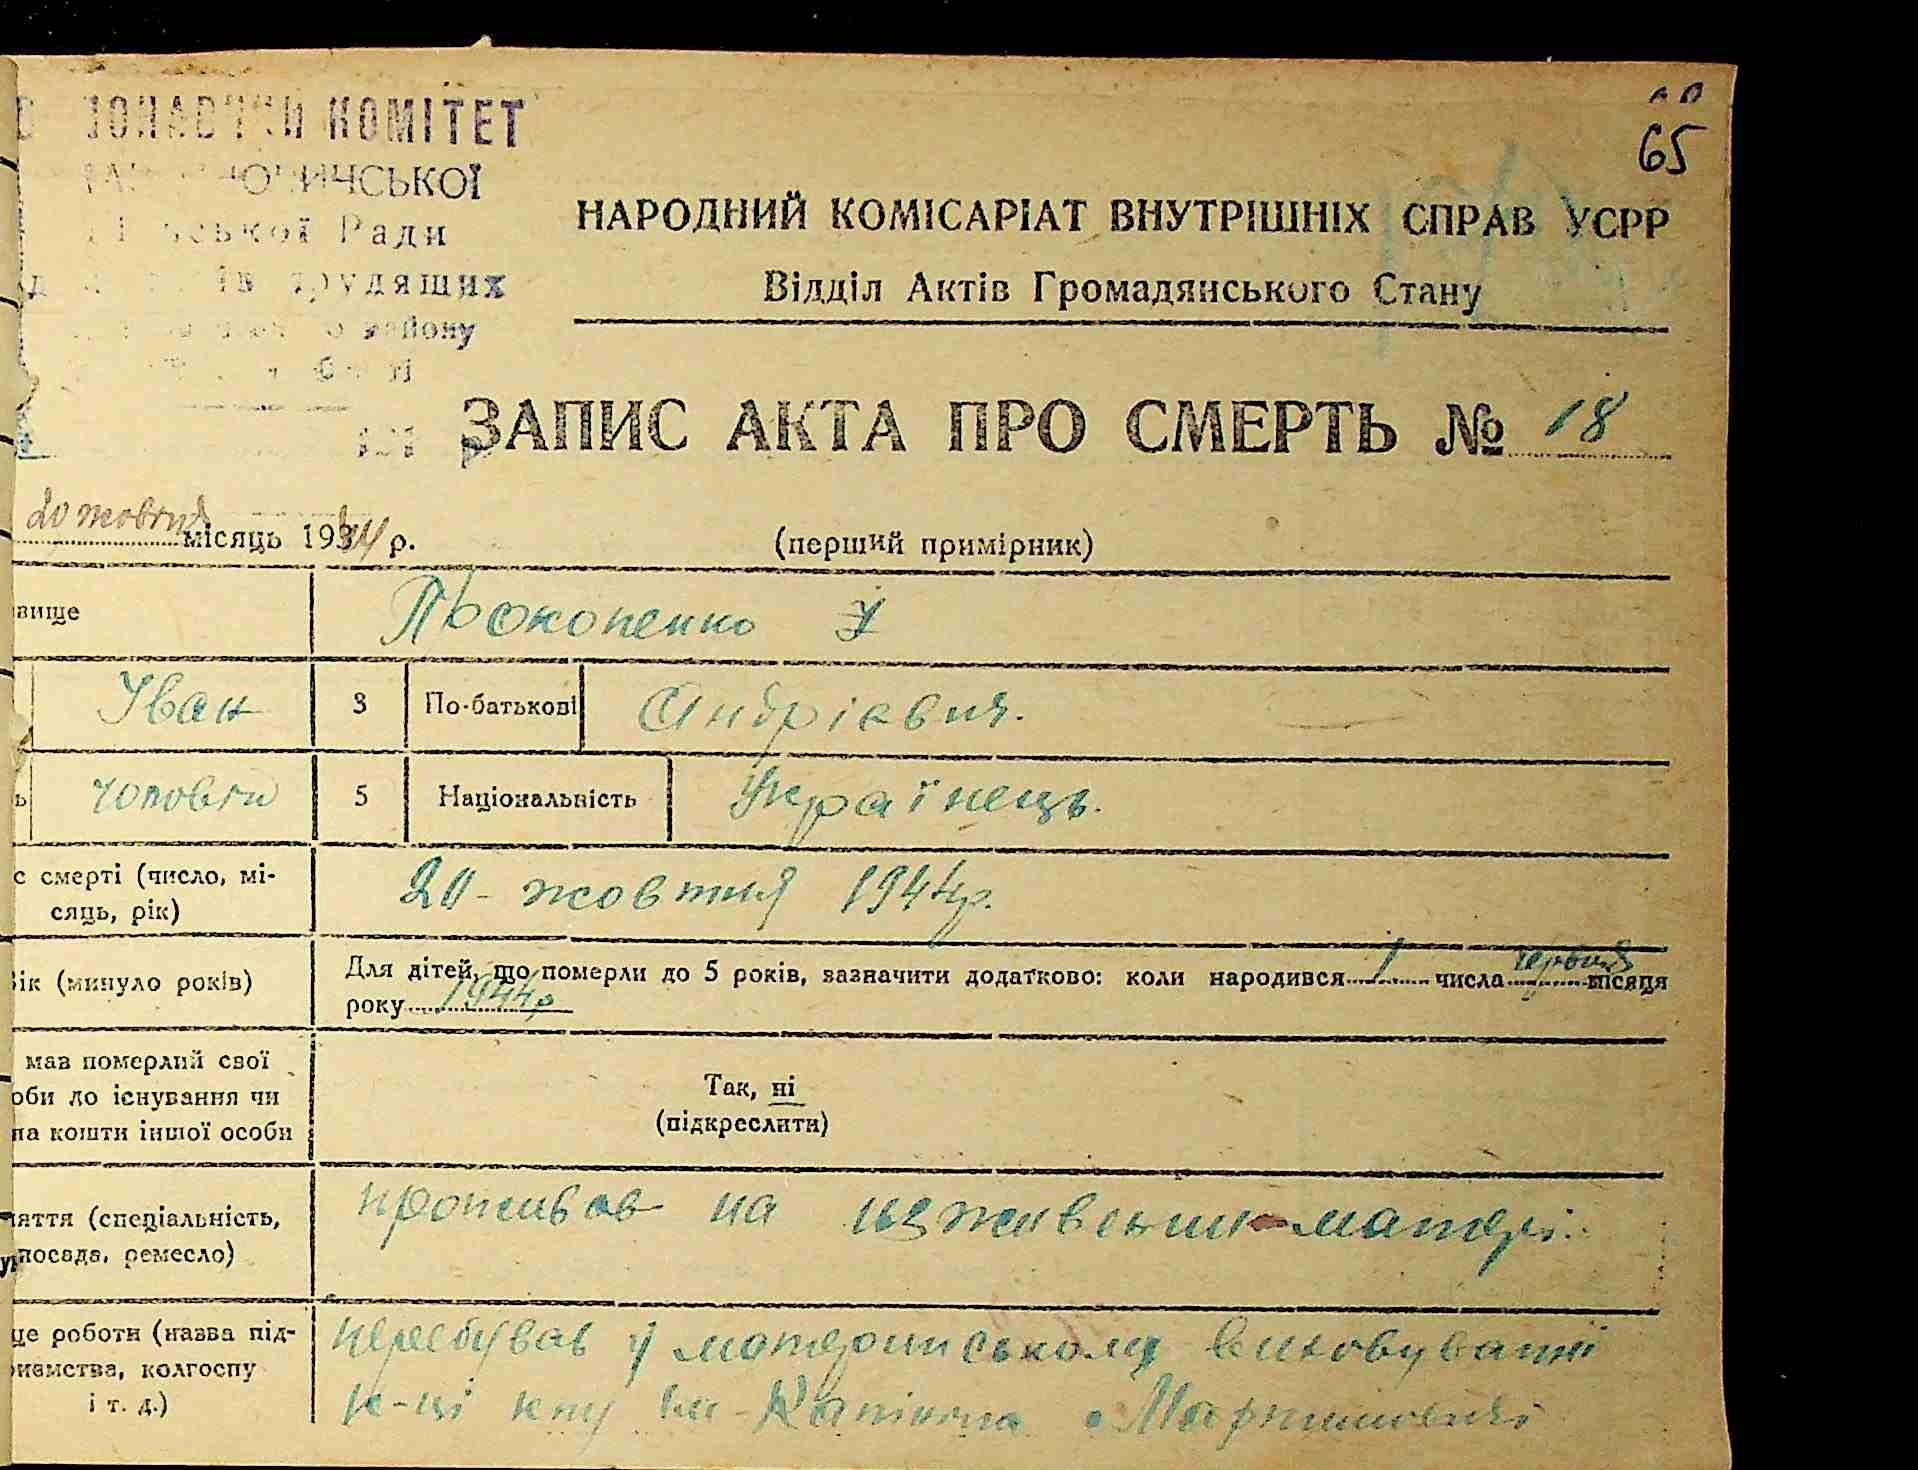 КОМІТЕТ
Ради
трудящих
району
65
НАРОДНИЙ КОМІСАРІАТ ВНУТРІШНІХ СПРАВ УСРР
Відділ Актів Громадянського Стану
ЗАПИС АКТА ПРО СМЕРТЬ № 18
20 жовтня місяць 1944 р.
(перший примірник)
вище
Прокопенко
Іван 3 По-батькові Андрієвич.
5 Національність Українець.
с смерті (число, мі-
сяць, рік)
20 - жовтня 1944р.
ік (минуло років)
Для дітей, що померли до 5 років, зазначити додатково: коли народився 1 числа червня місяця
року 1944р
мав померлий свої
оби до існування чи
на кошти іншої особи
Так, ні
(підкреслити)
няття (спеціальність,
посада, ремесло)
проживав на матері.
це роботи (назва під-
риємства, колгоспу
і т. д.)
перебував у материнському вихованні